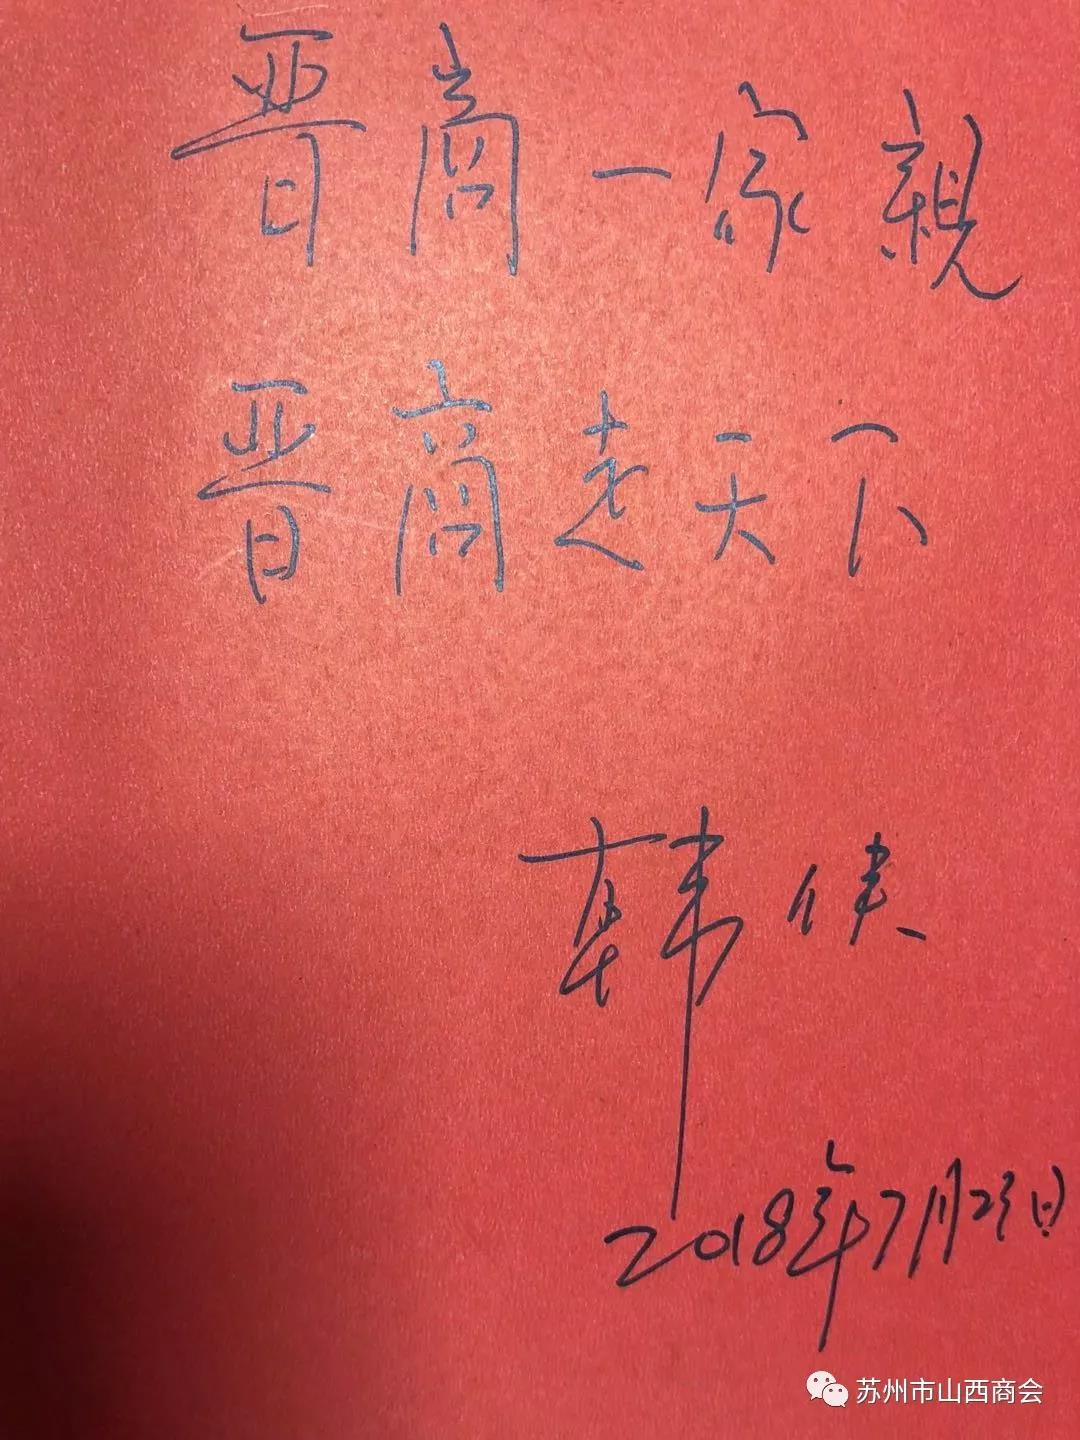 晋商一家親
晋商走天下
韩俊
2018年7月23日
苏州市山西商会